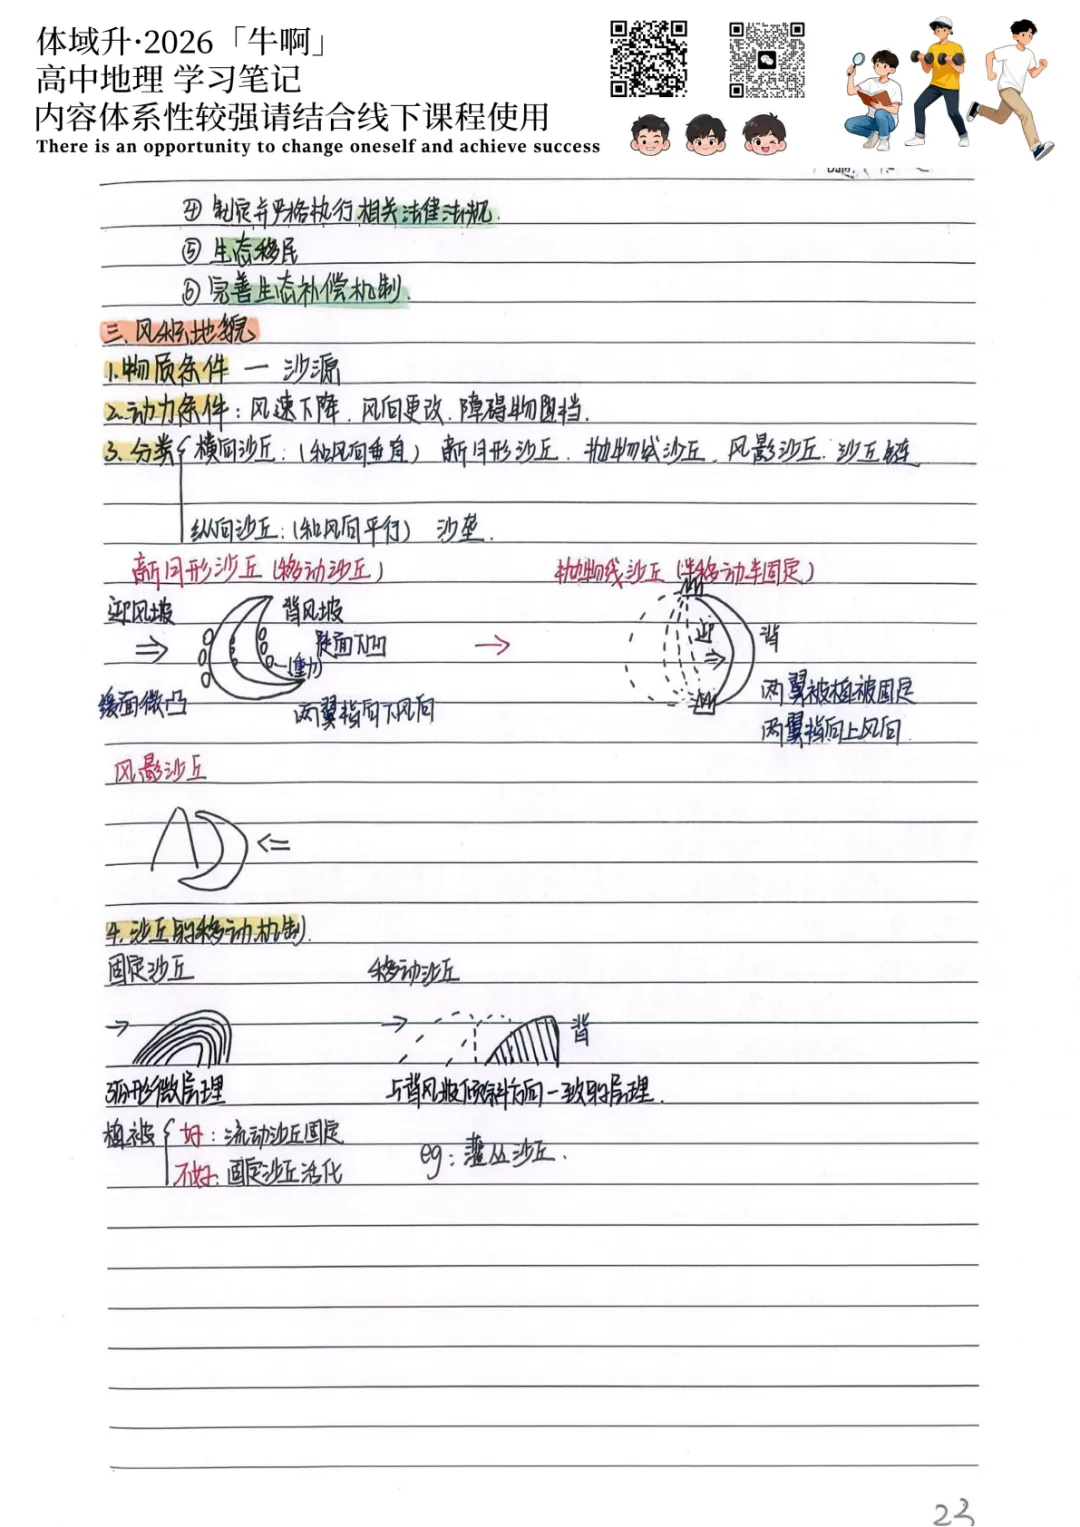 体域升·2026「牛啊」
高中地理 学习笔记
内容体系性较强请结合线下课程使用
There is an opportunity to change oneself and achieve success
④ 制定并严格执行相关法律法规.
⑤ 生态移民
⑥ 完善生态补偿机制.
三、风积地貌
1.物质条件 — 沙源
2.动力条件:风速下降、风向更改、障碍物阻挡.
3.分类 横向沙丘:(和风向垂直) 新月形沙丘、抛物线沙丘、风影沙丘、沙丘链
纵向沙丘:(和风向平行) 沙垄.
新月形沙丘(移动沙丘) 抛物线沙丘(半移动半固定)
迎风坡 背风坡 迎 背
陡面下凹
缓面微凸 两翼指向下风向 两翼被植被固定
两翼指向上风向.
风影沙丘
4.沙丘的移动机制.
固定沙丘 移动沙丘
背
弧形微层理 与背风坡倾斜方向一致的层理.
植被 好:流动沙丘固定 eg:灌丛沙丘.
不好:固定沙丘活化
23